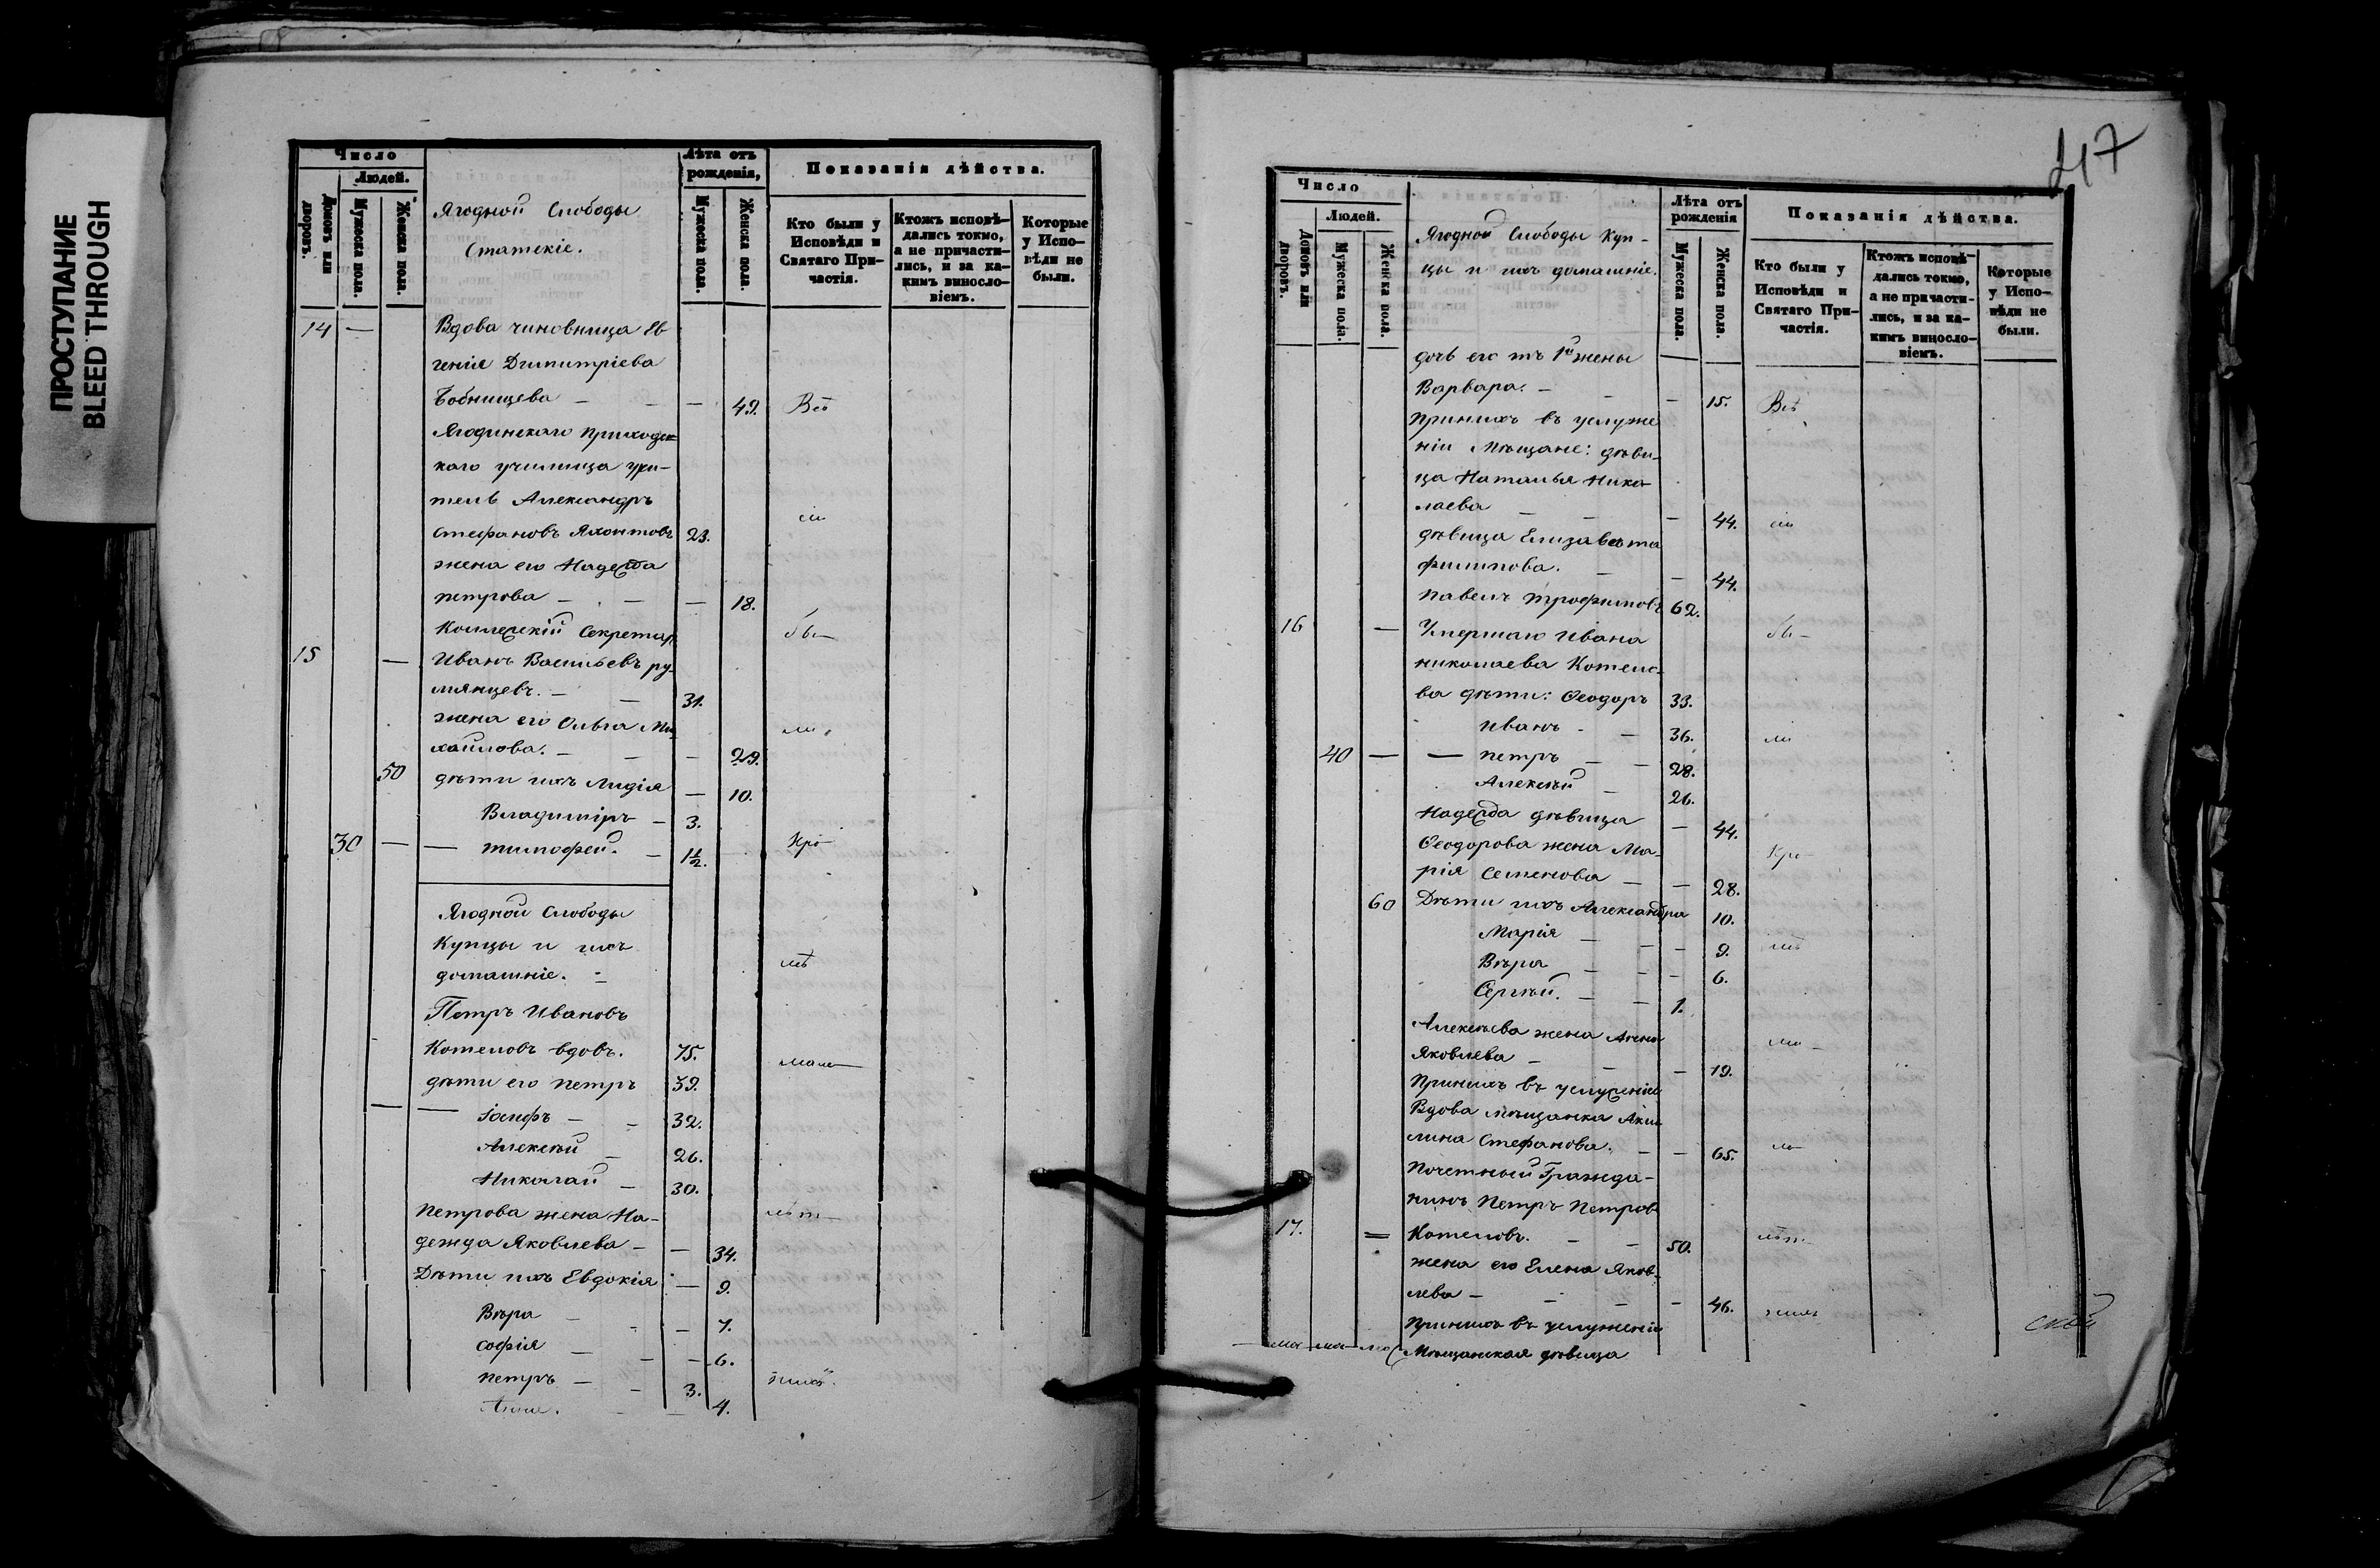 ПРОСТУПАНИЕ
BLEED THROUGH
Число
Людей.
Домовъ или дворовъ.
Мужеска пола.
Женска пола.
Ягодной Слободы
Статскіе.
Лѣта отъ рожденія,
Мужеска пола.
Женска пола.
Показанія дѣйства.
Кто были у Исповѣди и Святаго Причастія.
Ктожъ исповѣдались токмо, а не причастились, и за какимъ винословіемъ.
Которые у Исповѣди не были.
14 — Вдова чиновница Ев
генія Димитріева
— — — 49. Всѣ
Ягодинскаго приходс
каго училища учи-
тель Александръ
Стефановъ Яхонтовъ 23.
жена его Надежда
петрова — — — 18.
Коллежскій Секретар
15 — Иванъ Васильевъ ру-
мянцевъ. — — 31.
жена его Ольга Ми
хайлова. — — — 29.
50 дѣти ихъ Лидія — 10.
Владиміръ — 3.
30 — — тимофей. — 1½.
Ягодной Слободы
Купцы и ихъ
домашніе. —
Петръ Ивановъ
Котеловъ вдовъ. 75.
дѣти его петръ 39.
— — Іосифъ — — 32.
Алексѣй — 26.
Николай — 30.
Петрова жена На-
дежда Яковлева — — 34.
Дѣти ихъ Евдокія — 9.
Вѣра — — — 7.
софія — — — 6.
петръ — — 3.
Анна. — — 4.
47
Число
Людей.
Домовъ или дворовъ.
Мужеска пола.
Женска пола.
Ягодной Слободы Куп-
цы и ихъ домашніе.
Лѣта отъ рожденія
Мужеска пола.
Женска пола.
Показанія дѣйства.
Кто были у Исповѣди и Святаго Причастія.
Ктожъ исповѣдались токмо, а не причастились, и за какимъ винословіемъ.
Которые у Исповѣди не были.
дочь его отъ 1й жены
Варвара. — — — 15. Всѣ
Принихъ въ услуже
ніи Мѣщане: дѣви-
ца Наталья Нико-
лаева — — — 44.
дѣвица Елизавета
филипова. — — 44.
Павелъ трофимовъ 62.
16 — Умершаго Ивана
николаева Котело-
ва дѣти: Ѳеодоръ 33.
Иванъ — — 36.
40 — — петръ — — 28.
Алексѣй — 26.
Надежда дѣвица — 44.
Ѳеодорова жена Ма-
рія Семенова — — 28.
60 Дѣти ихъ Александра 10.
Марія — — — 9.
Вѣра — — — 6.
Сергѣй. — — 1.
Алексѣева жена
Яковлева — — — 19.
Принихъ въ услуженіи
Вдова мѣщанка Аки
лина Стефанова. — — 65.
Почетный Гражда-
нинъ Петръ Петров
17. = Котеловъ. — — 50.
жена его Елена Яков-
лева — — — — 46.
Принихъ въ услуженіи
Мѣщанская дѣвица